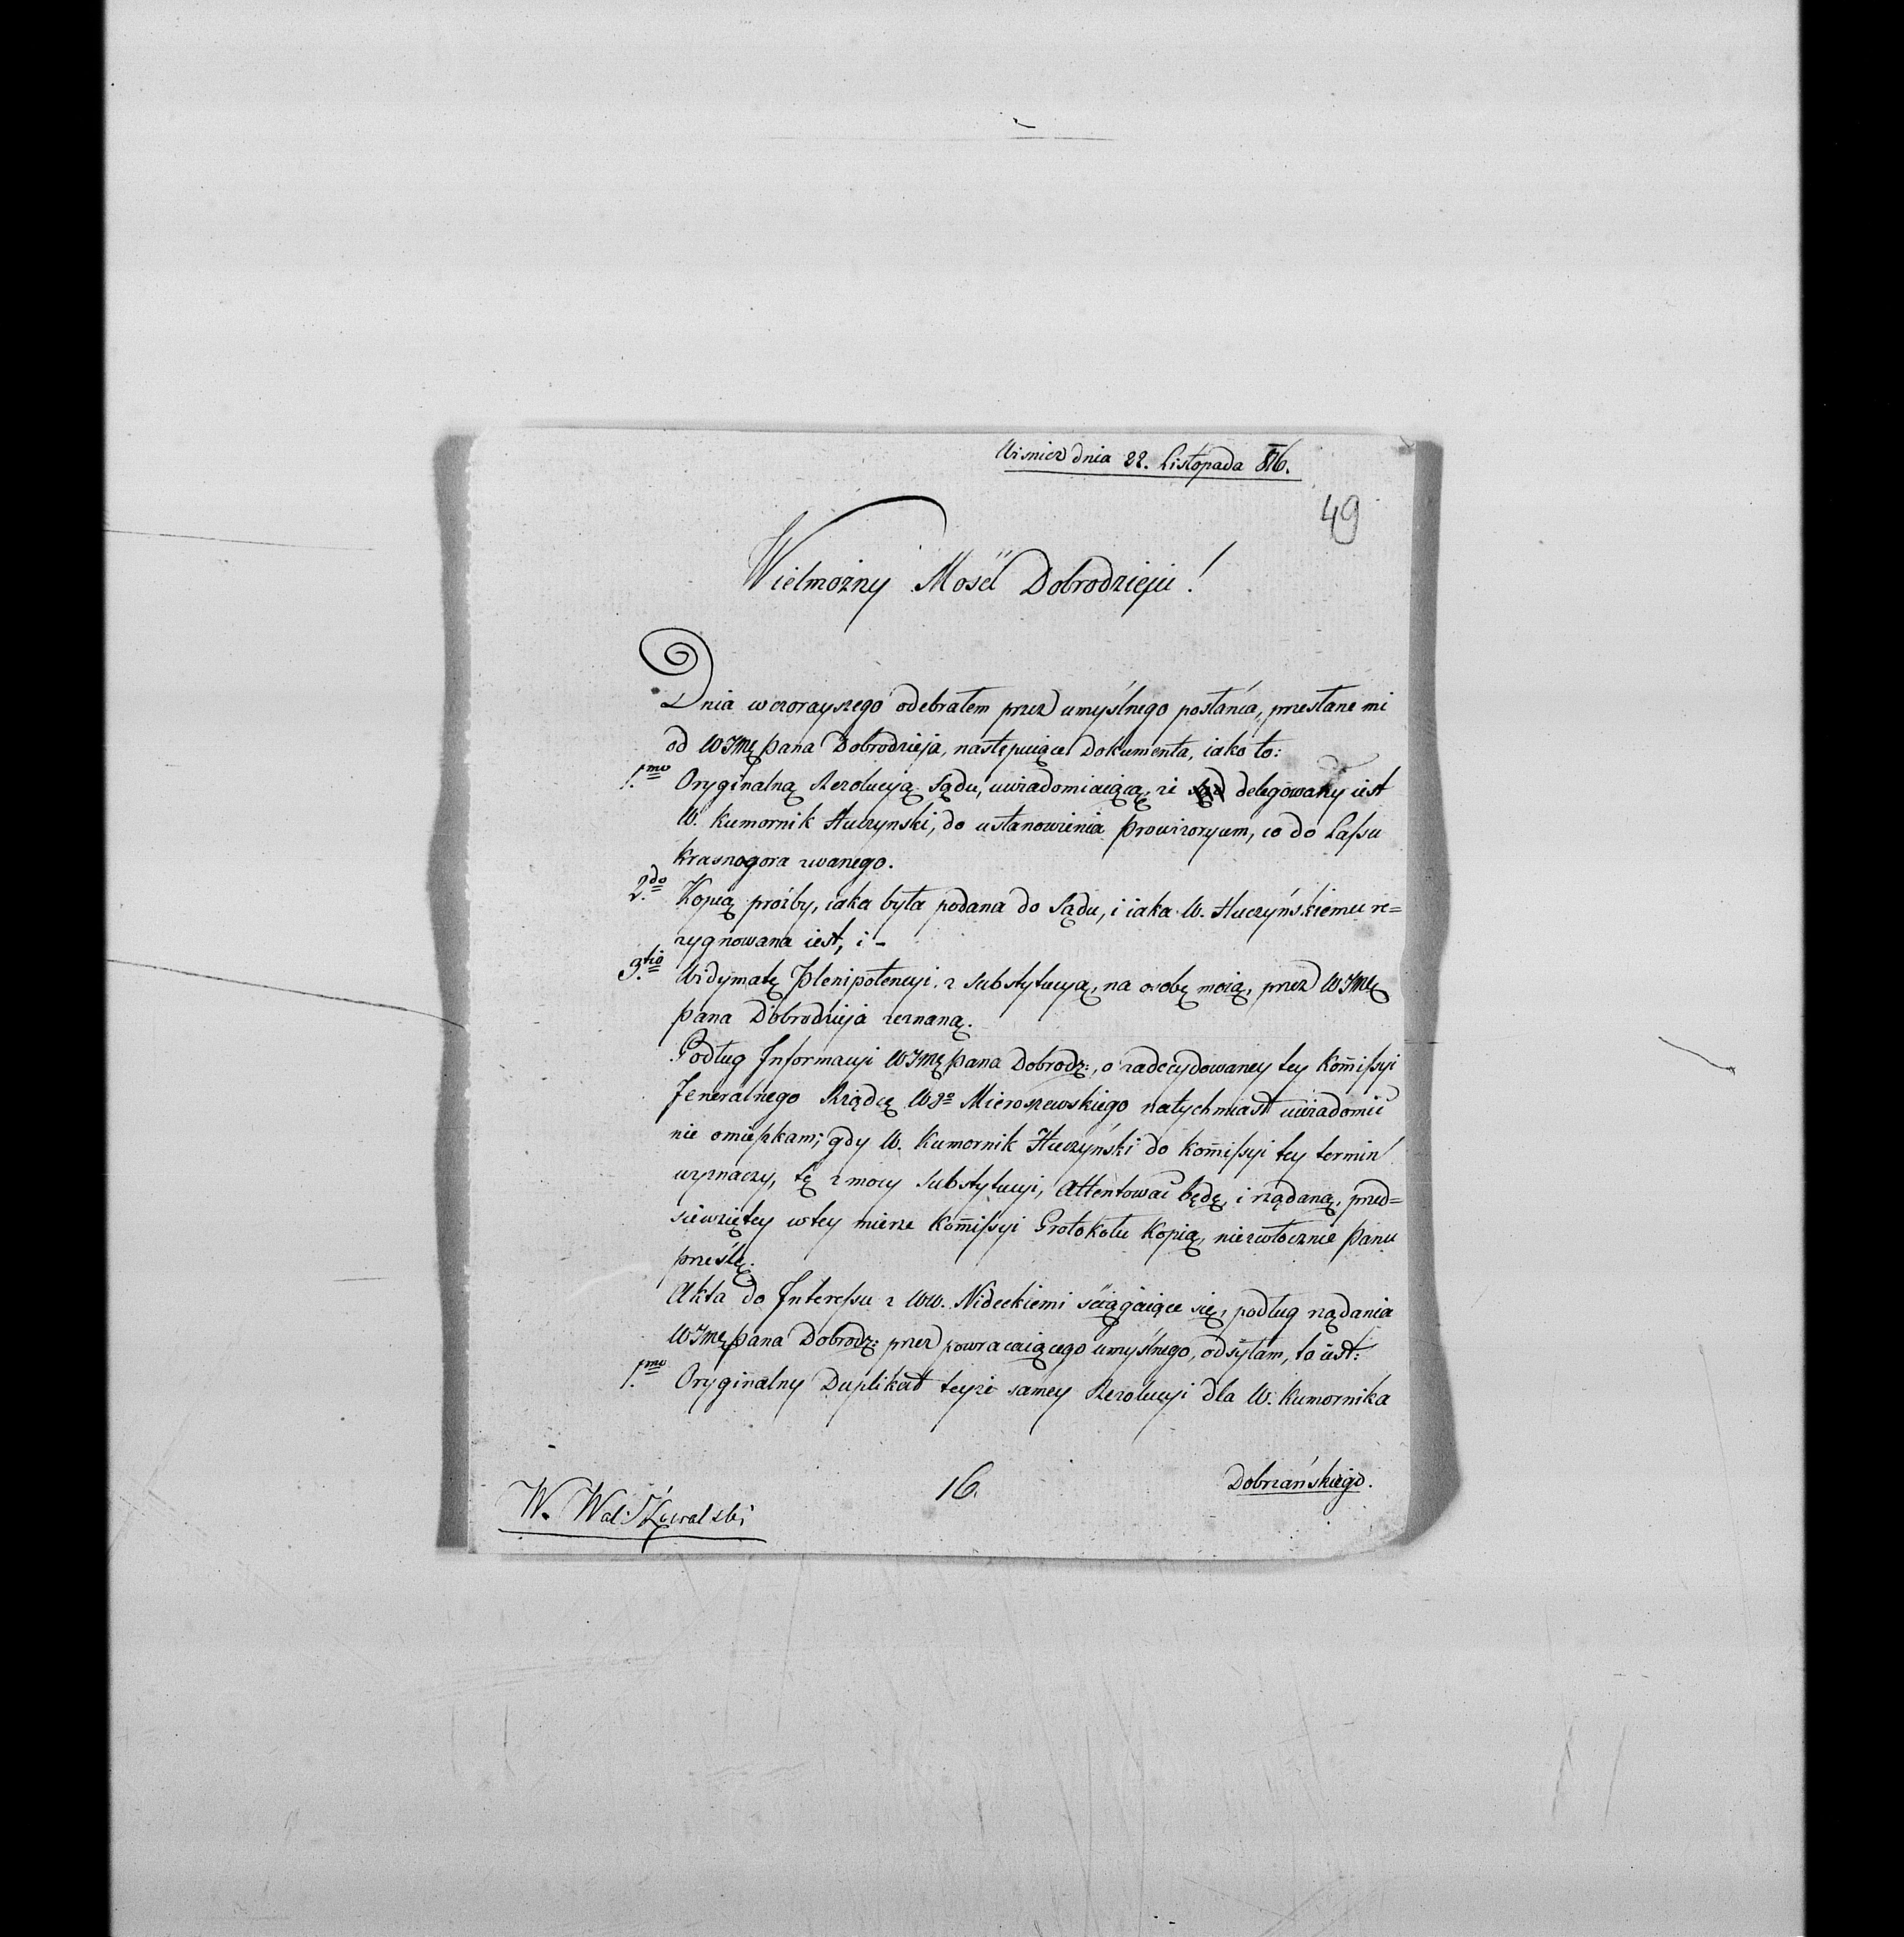 Wisnicz dnia 22. Listopada 816.
49
Wielmożny Mości Dobrodzieju!
Dnia wczorayszego odebrałem przez umyślnego posłańca, przesłane mi
od WJMę Pana Dobrodzieja, następuiące Dokumenta, iako to:
1.mo Oryginalną Rezolucyią Sądu, uwiadomiaiącą, że delegowany iest
W. Kumornik Huczynski, do ustanowienia Prowizoryum, co do Laſsu
Krasnogora zwanego.
2.do Kopią prożby, iaka była podana do Sądu, i iaka W. Huczyńskiemu re=
zygnowana iest, i -
3.tio Widymatę Plenipotencyi, z Substytucyą, na osobę moią, przez WJMę
Pana Dobrodzieja zeznaną.
Podług Informacyi WJMę Pana Dobrodz:, o zadecydowaney tey Kom̄iſsyi
Jeneralnego Rządcę Wgo Mieroszewskiego natychmiast uwiadomić
nie omieszkam; gdy W. Kumornik Huczyński do Kom̄iſsyi tey termin
wyznaczy, tę z mocy Substytucyi, Attentować będę, i rządaną, przed=
siewziętey w tey mierze Kom̄iſsyi Protokołu Kopią, niezwłocznie Panu
prześlę.
Akta do Intereſsu z WW. Nideckiemi sciągaiące się, podług rządania
WJMę Pana Dobrodz: przez powracaiącego umyślnego, odsyłam, to iest:
1.mo Oryginalny Duplikat teyże samey Rezolucyi dla W. Kumornika
Dobrzańskiego.
16.
W. Wal: